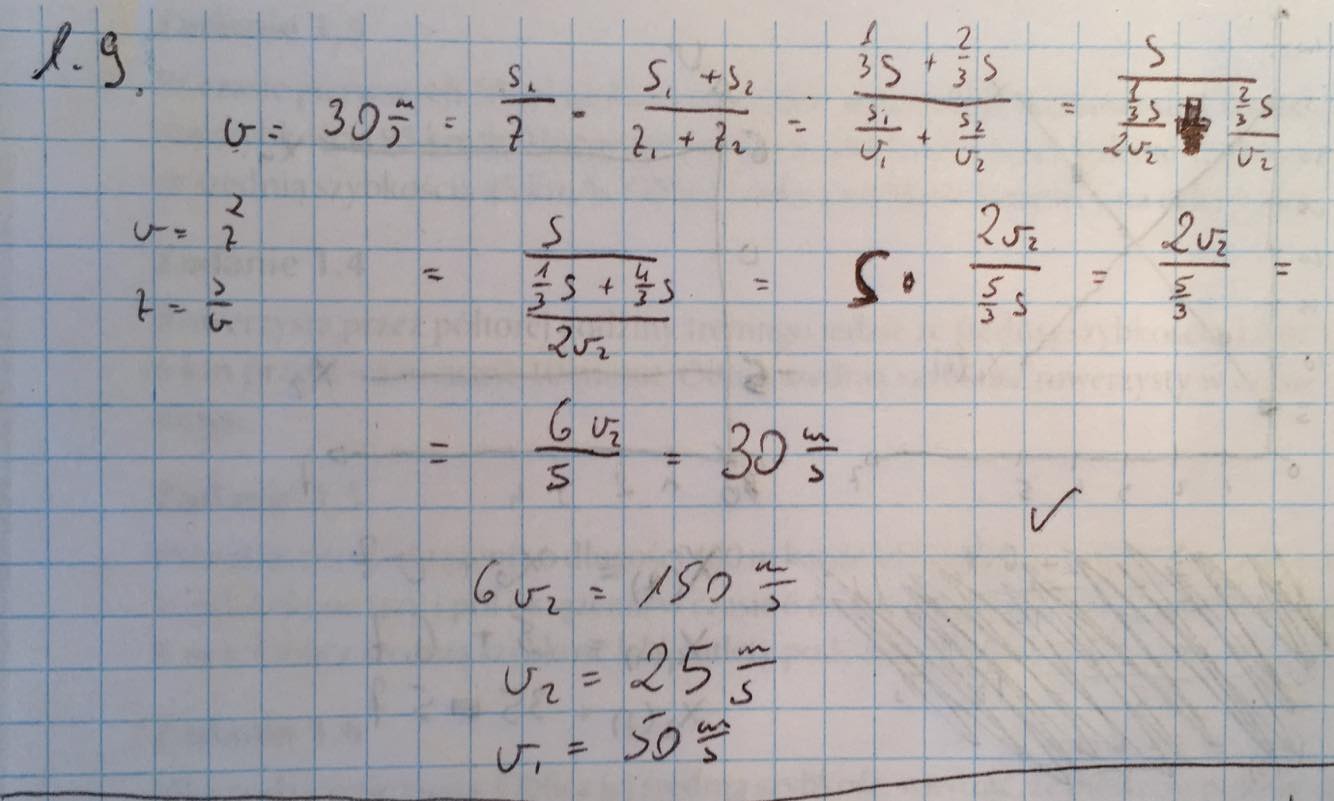 1.9.
v = 30 m/s = s₁/t = (s₁ + s₂)/(t₁ + t₂) = (1/3 s + 2/3 s)/(s₁/v₁ + s₂/v₂) = s/((1/3 s)/(2v₂) + (2/3 s)/v₂)
v = s/t
t = s/v
= s/((1/3 s + 4/3 s)/(2v₂)) = s · 2v₂/(5/3 s) = 2v₂/(5/3) =
= 6v₂/5 = 30 m/s
✓
6v₂ = 150 m/s
v₂ = 25 m/s
v₁ = 50 m/s